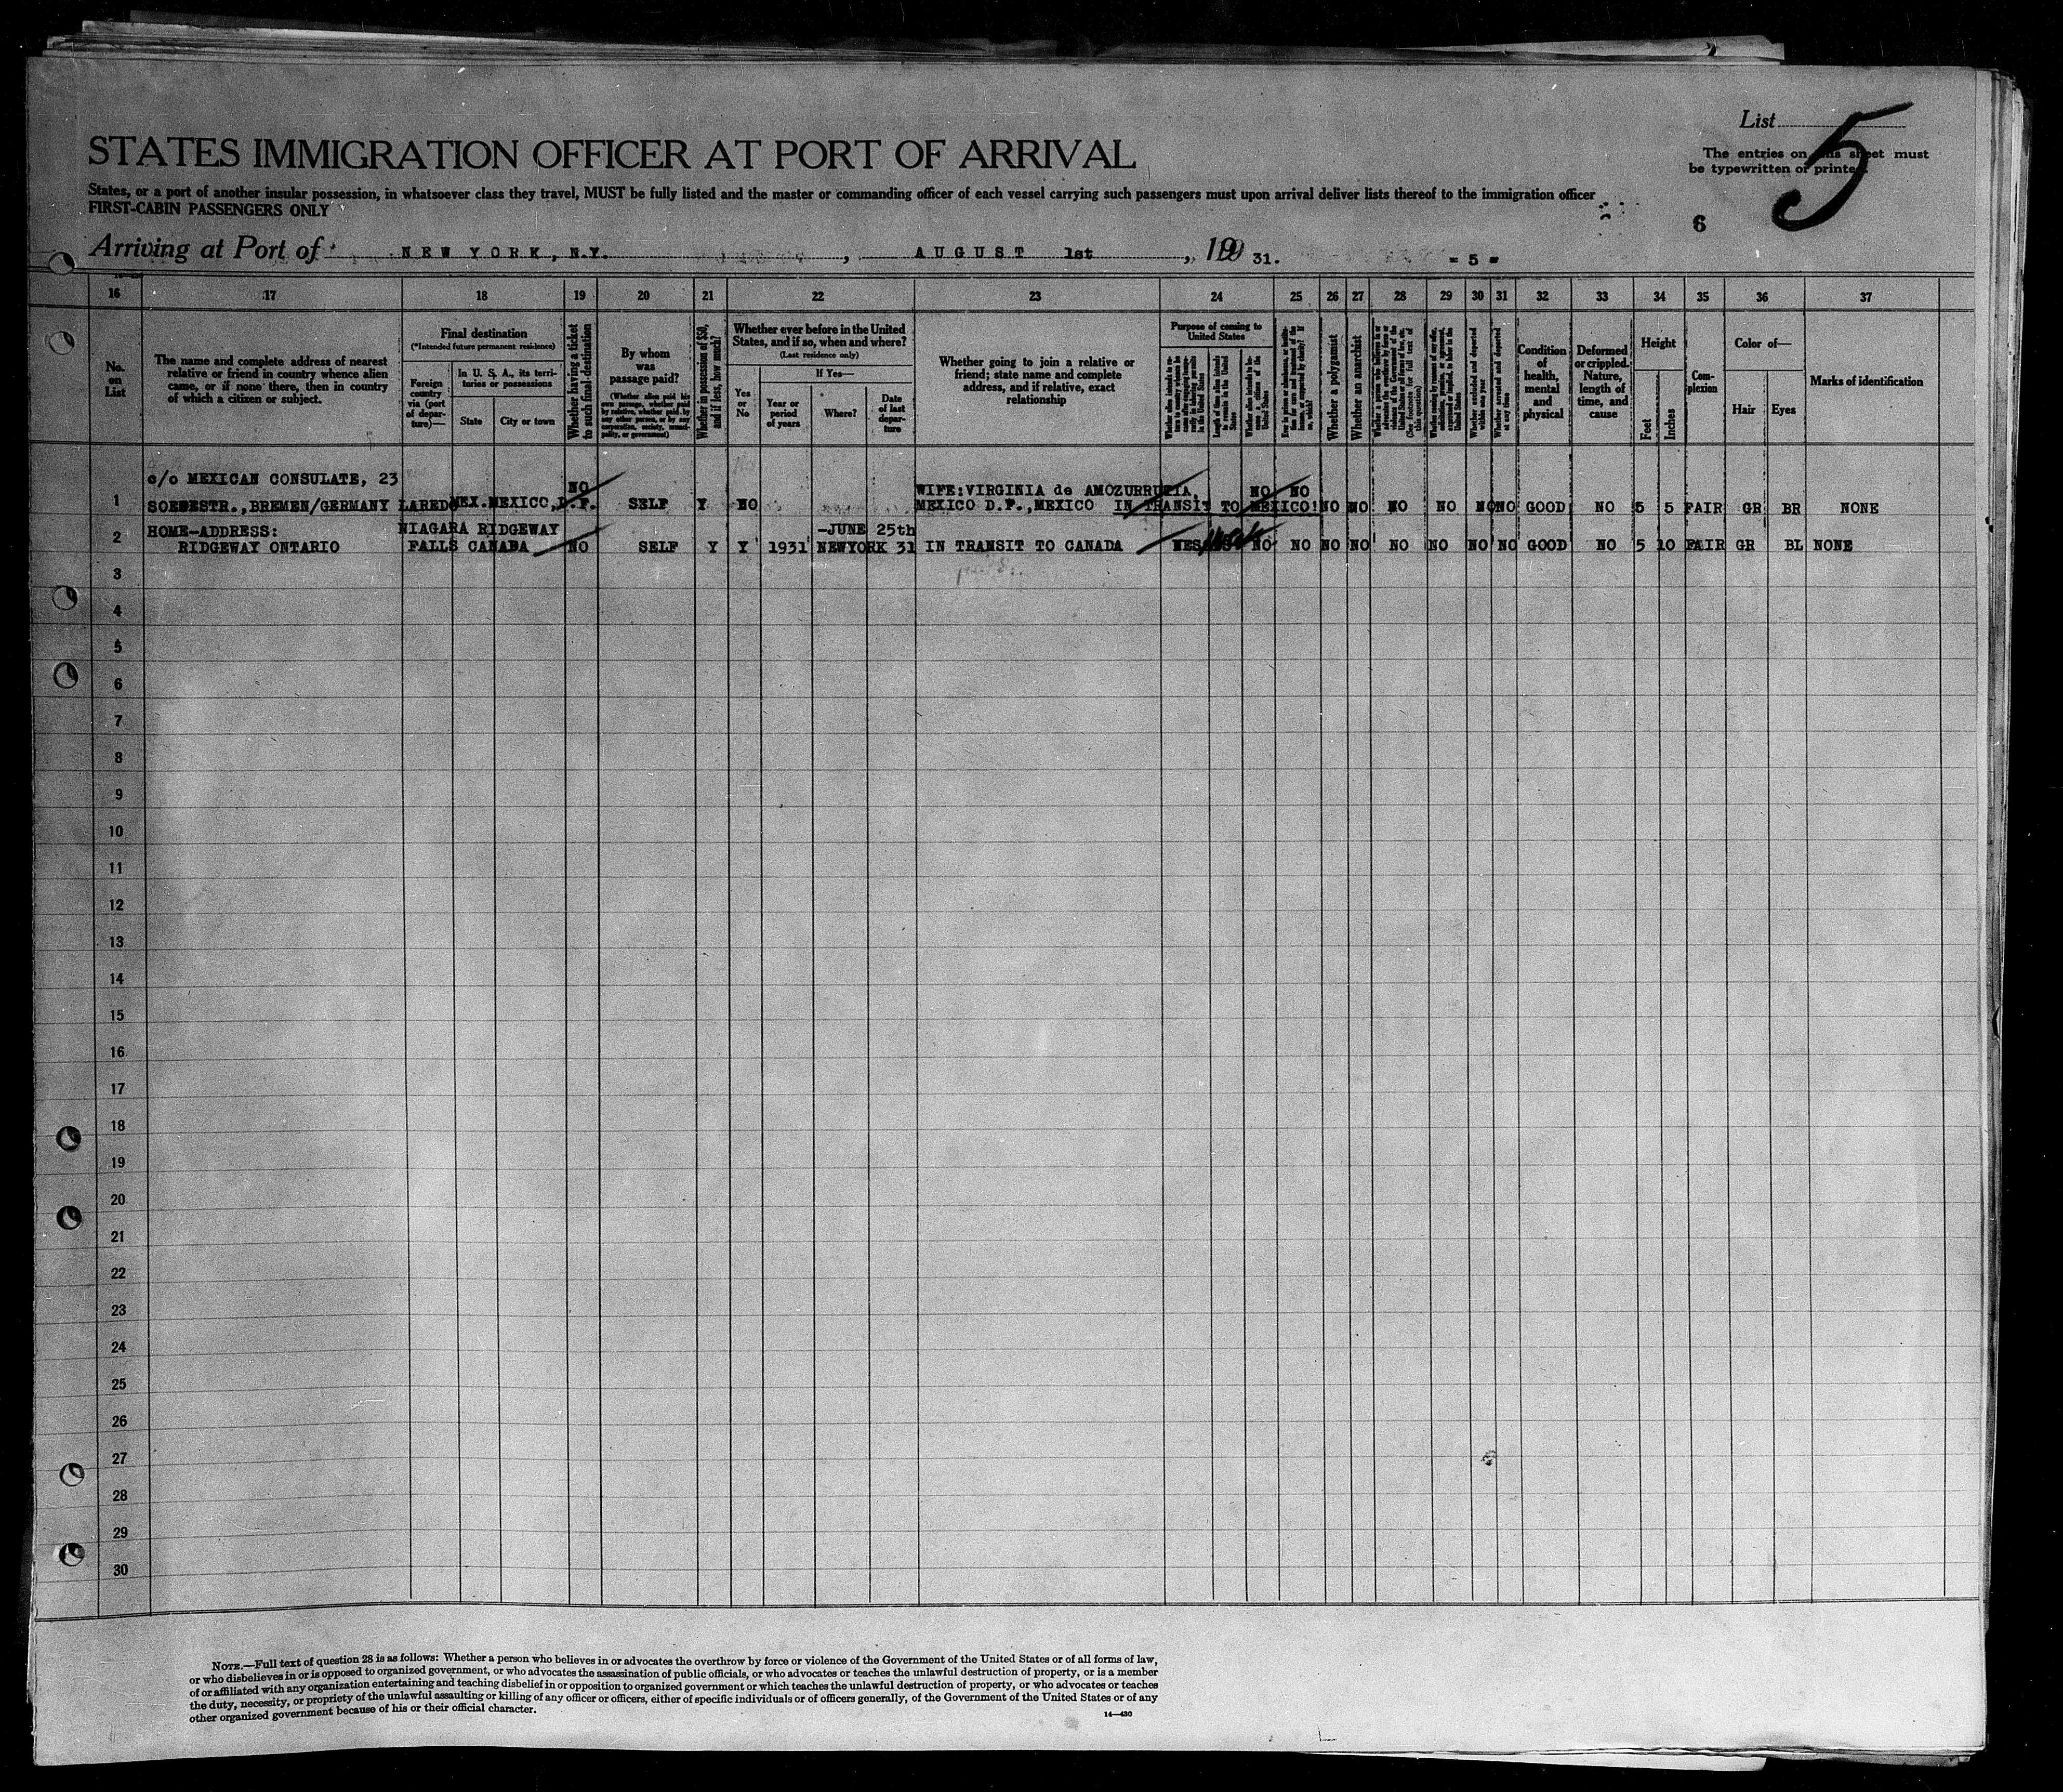 List
5
STATES IMMIGRATION OFFICER AT PORT OF ARRIVAL
The entries on this sheet must
be typewritten or printed.
States, or a port of another insular possession, in whatsoever class they travel, MUST be fully listed and the master or commanding officer of each vessel carrying such passengers must upon arrival deliver lists thereof to the immigration officer
FIRST-CABIN PASSENGERS ONLY
6
Arriving at Port of NEW YORK, N.Y. , AUGUST 1st , 19 31.
- 5 -
16 17 18 19 20 21 22 23 24 25 26 27 28 29 30 31 32 33 34 35 36 37
No. on List
The name and complete address of nearest
relative or friend in country whence alien
came, or if none there, then in country
of which a citizen or subject.
Final destination
(*Intended future permanent residence)
Foreign country via (port of departure)—
In U. S. A., its territories or possessions
State
City or town
Whether having a ticket to such final destination
By whom was passage paid?
(Whether alien paid his own passage, whether paid by relative, whether paid by any other person, or by any corporation, society, municipality, or government)
Whether in possession of $50, and if less, how much?
Whether ever before in the United
States, and if so, when and where?
(Last residence only)
Yes or No
If Yes—
Year or period of years
Where?
Date of last departure
Whether going to join a relative or
friend; state name and complete
address, and if relative, exact
relationship
Purpose of coming to United States
Whether a polygamist
Whether an anarchist
Whether arrested and deported at any time
Condition of health, mental and physical
Deformed or crippled. Nature, length of time, and cause
Height
Feet
Inches
Complexion
Color of—
Hair
Eyes
Marks of identification
c/o MEXICAN CONSULATE, 23 NO WIFE:VIRGINIA de AMOZURRUTIA, NO NO
1 SOEGESTR.,BREMEN/GERMANY LAREDO MEX. MEXICO, D.F. SELF Y NO MEXICO D.F.,MEXICO IN TRANSIT TO MEXICO! NO NO NO NO NO NO GOOD NO 5 5 FAIR GR BR NONE
HOME-ADDRESS: NIAGARA RIDGEWAY -JUNE 25th
2 RIDGEWAY ONTARIO FALLS CANADA NO SELF Y Y 1931 NEWYORK 31 IN TRANSIT TO CANADA NO NO NO NO NO NO NO NO GOOD NO 5 10 FAIR GR BL NONE
3
4
5
6
7
8
9
10
11
12
13
14
15
16
17
18
19
20
21
22
23
24
25
26
27
28
29
30
NOTE.—Full text of question 28 is as follows: Whether a person who believes in or advocates the overthrow by force or violence of the Government of the United States or of all forms of law,
or who disbelieves in or is opposed to organized government, or who advocates the assassination of public officials, or who advocates or teaches the unlawful destruction of property, or is a member
of or affiliated with any organization entertaining and teaching disbelief in or opposition to organized government or which teaches the unlawful destruction of property, or who advocates or teaches
the duty, necessity, or propriety of the unlawful assaulting or killing of any officer or officers, either of specific individuals or of officers generally, of the Government of the United States or of any
other organized government because of his or their official character.
14—430